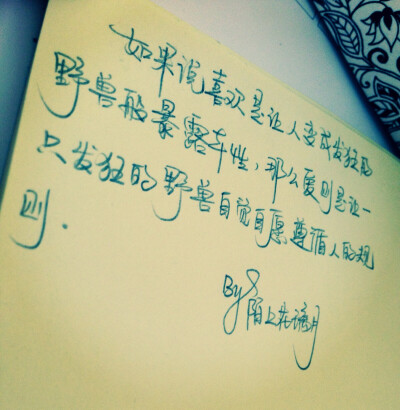 如果说喜欢是让人变成发狂的
野兽般暴露本性，那么爱则是让一
只发狂的野兽自觉自愿遵循人的规
则.
By 陌上花